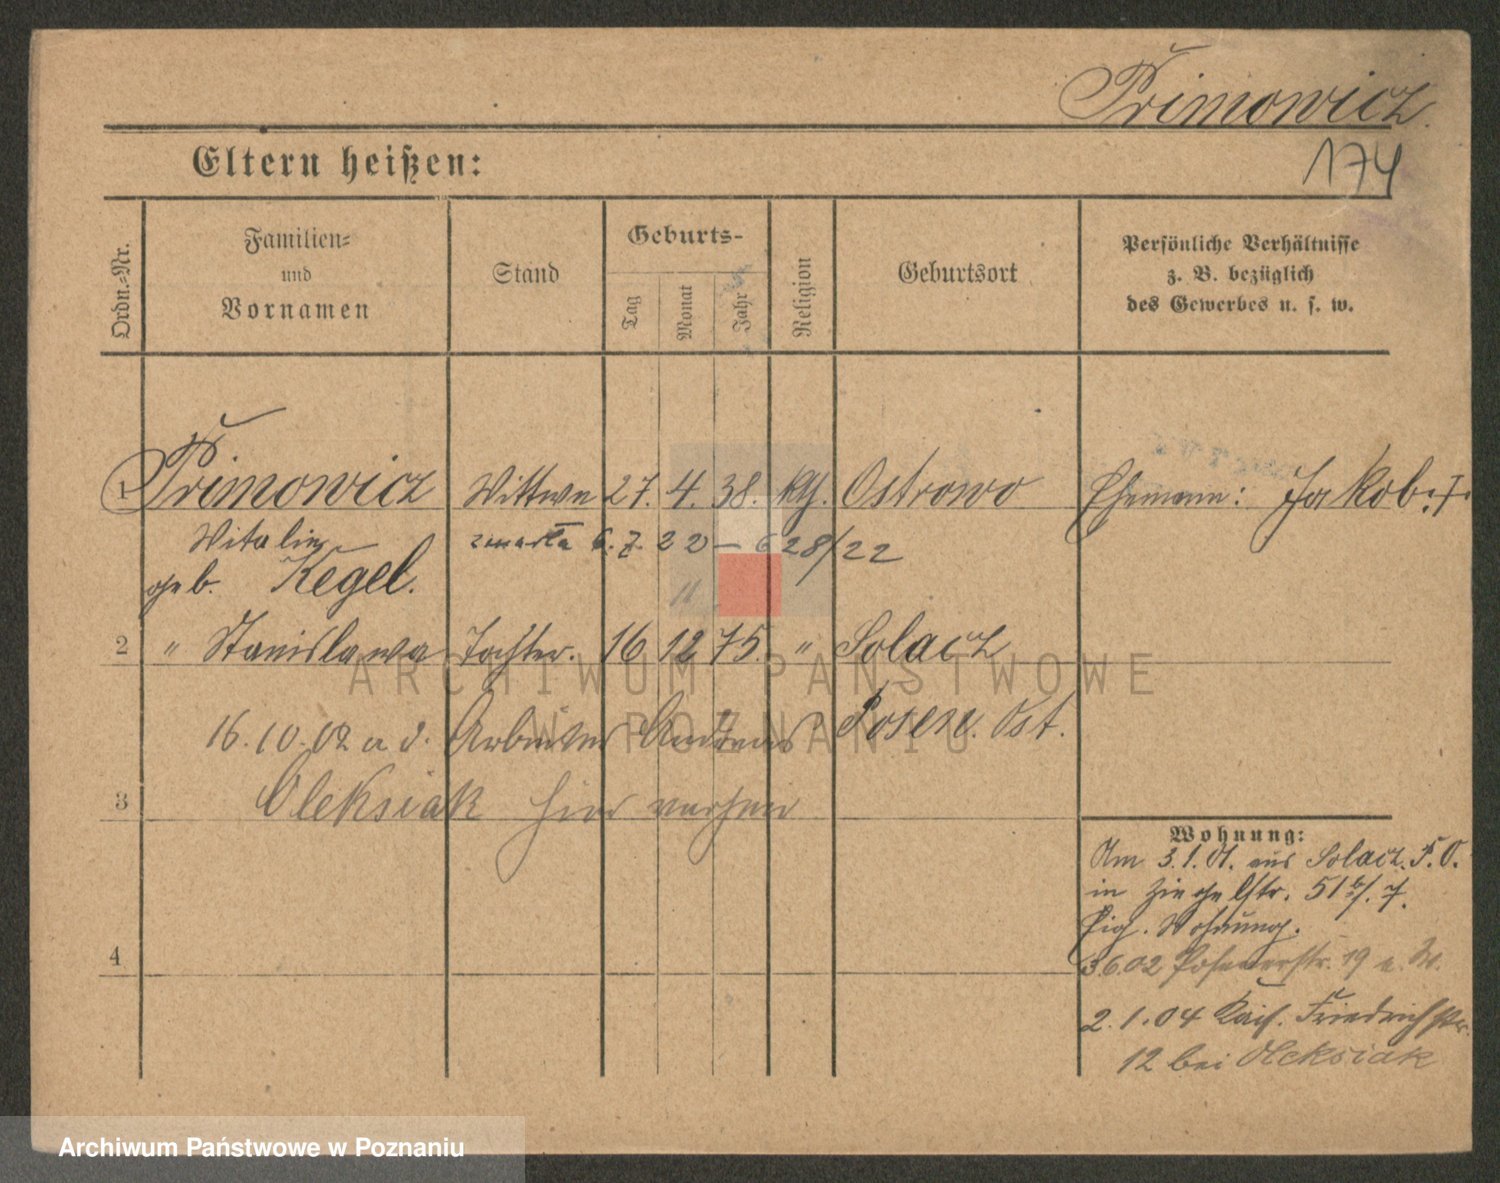 Primowicz.
Eltern heißen: 174
Ordn.-Nr. Familien- und Vornamen Stand Geburts- Tag Monat Jahr Religion Geburtsort Persönliche Verhältnisse z. B. bezüglich des Gewerbes u. s. w.
1 Primowicz Wittwe 27. 4. 38. kth. Ostrowo Ehemann: Jakob. †.
Vitalie zmarła 6. 7. 22 — 628/22
geb. Kegel. 11
2 " Stanislawa Tochter. 16 12 75. " Solacz
16.10.02 a d. Arbeiter Andreas Posen. Ost.
3 Oleksiak hier verheir
Wohnung:
Am 3.1.01. aus Solacz. P.O.
in Ziegelstr. 51
Eig. Wohnung.
4 3.6.02 Posenerstr. 19 e. W.
2.1.04 Kais. Friedrichstr.
12 bei Oleksiak
ARCHIWUM PAŃSTWOWE
W POZNANIU
Archiwum Państwowe w Poznaniu